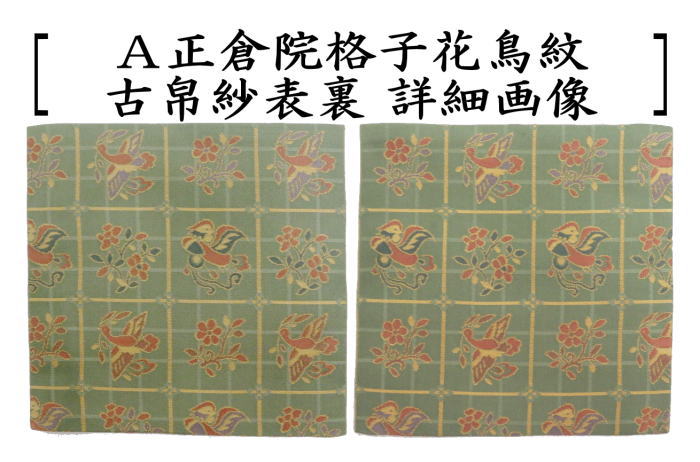 [A正倉院格子花鳥紋
古帛紗表裏 詳細画像]